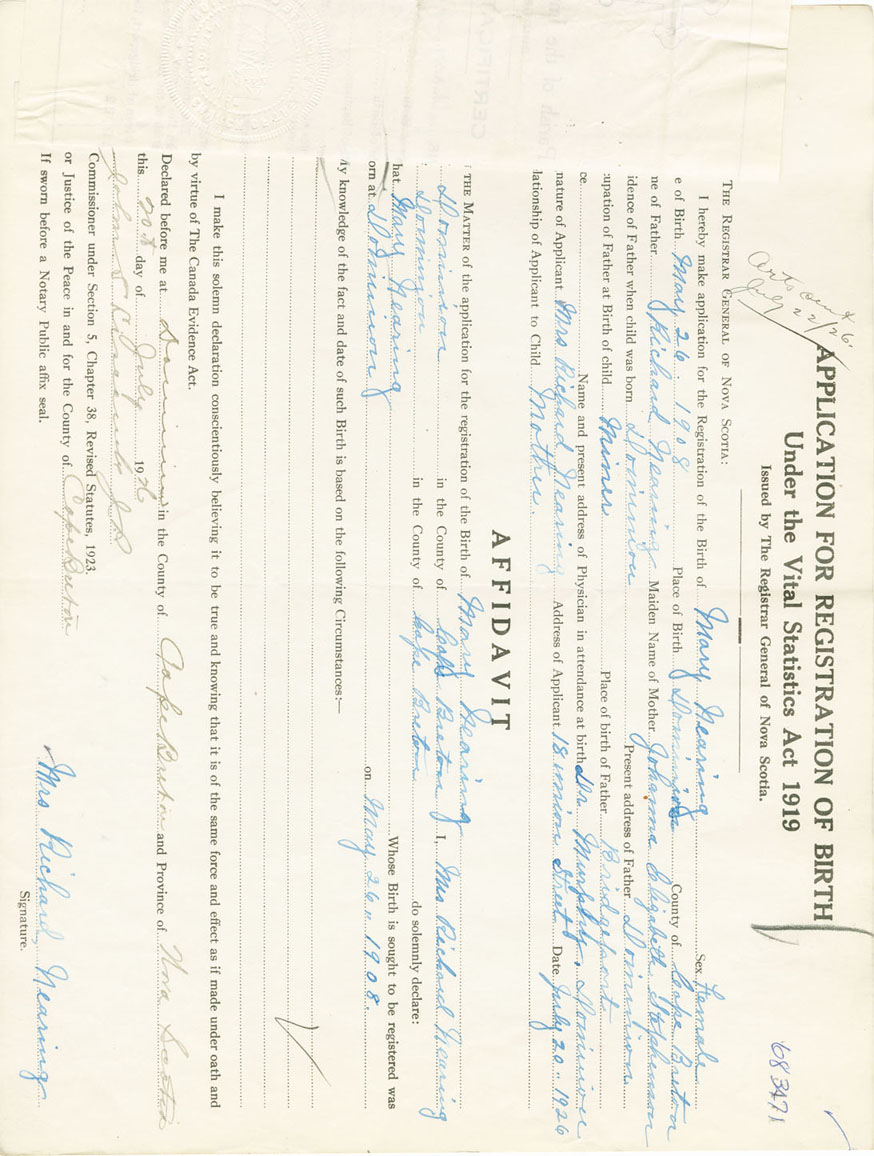 683471
APPLICATION FOR REGISTRATION OF BIRTH
Under the Vital Statistics Act 1919
Issued by The Registrar General of Nova Scotia.
July 22/26
THE REGISTRAR GENERAL OF NOVA SCOTIA:
I hereby make application for the Registration of the Birth of Mary Nearing Sex Female
e of Birth May 26. 1908 Place of Birth Dominion County of Cape Breton
ne of Father Richard Nearing Maiden Name of Mother Johanna Elizabeth Stephenson
idence of Father when child was born Dominion Present address of Father Dominion
upation of Father at Birth of child Miner Place of birth of Father Bridgeport
Name and present address of Physician in attendance at birth Dr. Murphy. Dominion
ce
nature of Applicant Mrs Richard Nearing Address of Applicant 18 Union Street Date July 20.. 1926
lationship of Applicant to Child Mother.
AFFIDAVIT
THE MATTER of the application for the registration of the Birth of Mary Nearing
Dominion in the County of Cape Breton I, Mrs Richard Nearing
Dominion in the County of Cape Breton do solemnly declare:
hat Mary Nearing Whose Birth is sought to be registered was
orn at Dominion on May 26.. 1908.
My knowledge of the fact and date of such Birth is based on the following Circumstances:—
I make this solemn declaration conscientiously believing it to be true and knowing that it is of the same force and effect as if made under oath and
by virtue of The Canada Evidence Act.
Declared before me at Dominion in the County of Cape Breton and Province of Nova Scotia
this 20th day of July 1926
Commissioner under Section 5, Chapter 38, Revised Statutes, 1923.
or Justice of the Peace in and for the County of Cape Breton
If sworn before a Notary Public affix seal.
Mrs Richard Nearing
Signature.